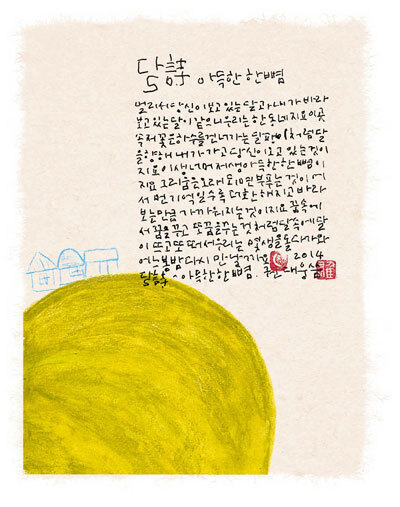 달詩 아득한 한뼘
멀리서 당신이 보고 있는 달과 내가 바라
보고 있는 달이 같으니 우리는 한 동네지요 이곳
속 저 꽃 은하수를 건너가는 달팽이처럼 달
을 향해 내가 가고 당신이 보고 있는 것이
지요 이 생 너머 저 생 아득한 한 뼘이
지요 그리움은 오래되면 부푸는 것이어
서 먼 기억일수록 더 환해지고 바라
보는 만큼 가까워지는 것이지요 꿈속에
서 꿈을 꾸고 또 꿈을 꾸는 것처럼 달 속에 달
이 뜨고 또 떠서 우리는 몇 생을 돌다가 와
어느 봄밤 다시 만날까요 2014
아득한 한뼘